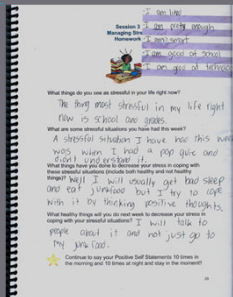 Session 5
Managing Stress
Homework
I am kind
I am pretty enough
I am smart
I am good at school
I am good at
What things do you see as stressful in your life right now?
The thing most stressful in my life right
now is school and grades.
What are some stressful situations you have had this week?
A stressful situation I have had this week
was when I had a pop quiz and
didn't understand it.
What things have you done to decrease your stress in coping with
these situations (include both healthy and not healthy
things)?
Well I will usually get bad sleep
and eat junkfood but I try to cope
with it by thinking positive thoughts.
What healthy things will you do next week to decrease your stress in
coping with your stressful situations?
I will talk to
people about it and not just go to
my junk food.
Continue to say your Positive Self Statements 10 times in
the morning and 10 times at night and stay in the moment!